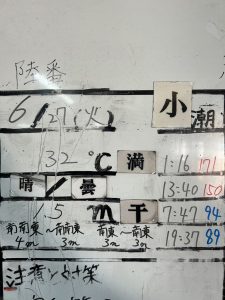 陸番
6/27(火) 小潮
32℃ 満 1:16 171
晴/曇 13:40 150
1.5m 干 7:47 94
南南東～南南東 南東～南東 19:37 89
4m 3m 3m 3m
注意